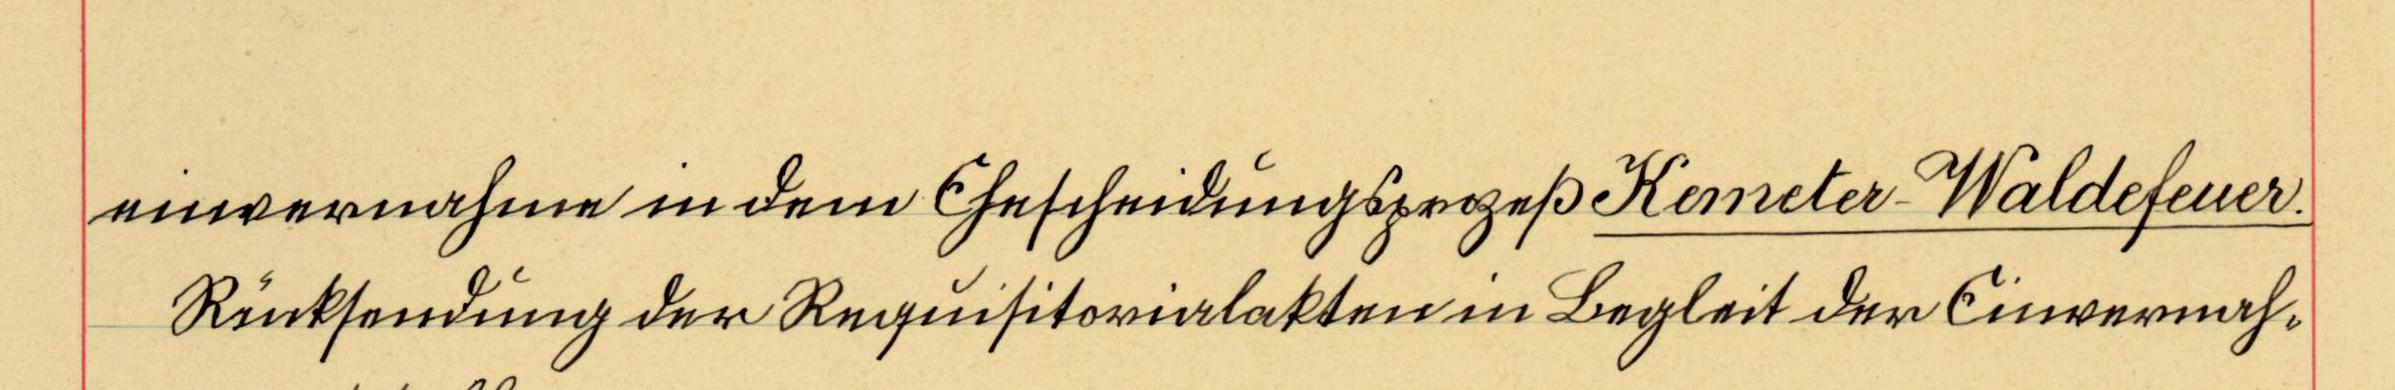 einvernahme in dem Ehescheidungsprozeß Kemeter-Waldefeuer.
Rücksendung der Requisitorialakten in Begleit der Einvernah-